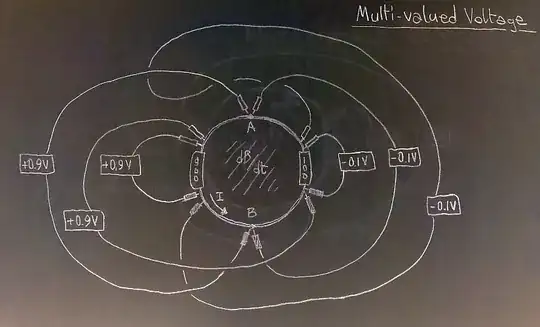 Multi-valued Voltage
A
dB
dt
900
100
+0.9V
+0.9V
-0.1V
-0.1V
-0.1V
+0.9V
I
B